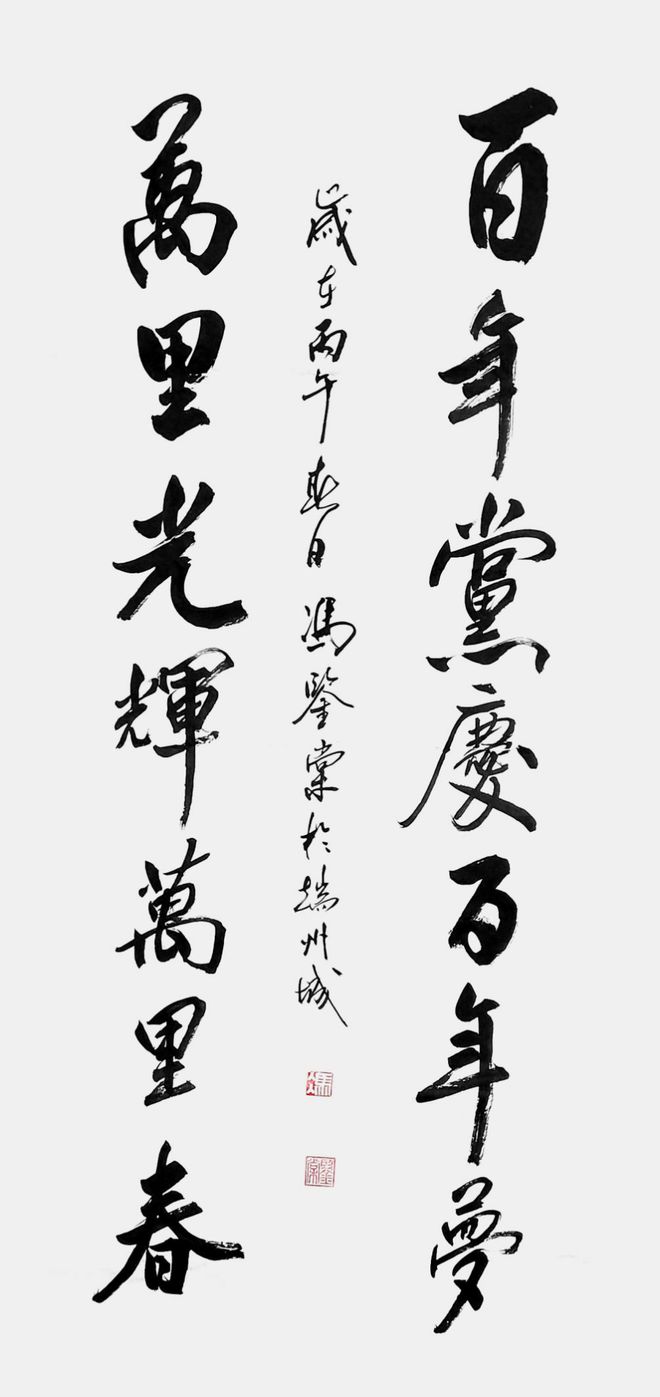 百年黨慶百年夢
歲在丙午春日馮鑒棠於端州城
萬里光輝萬里春